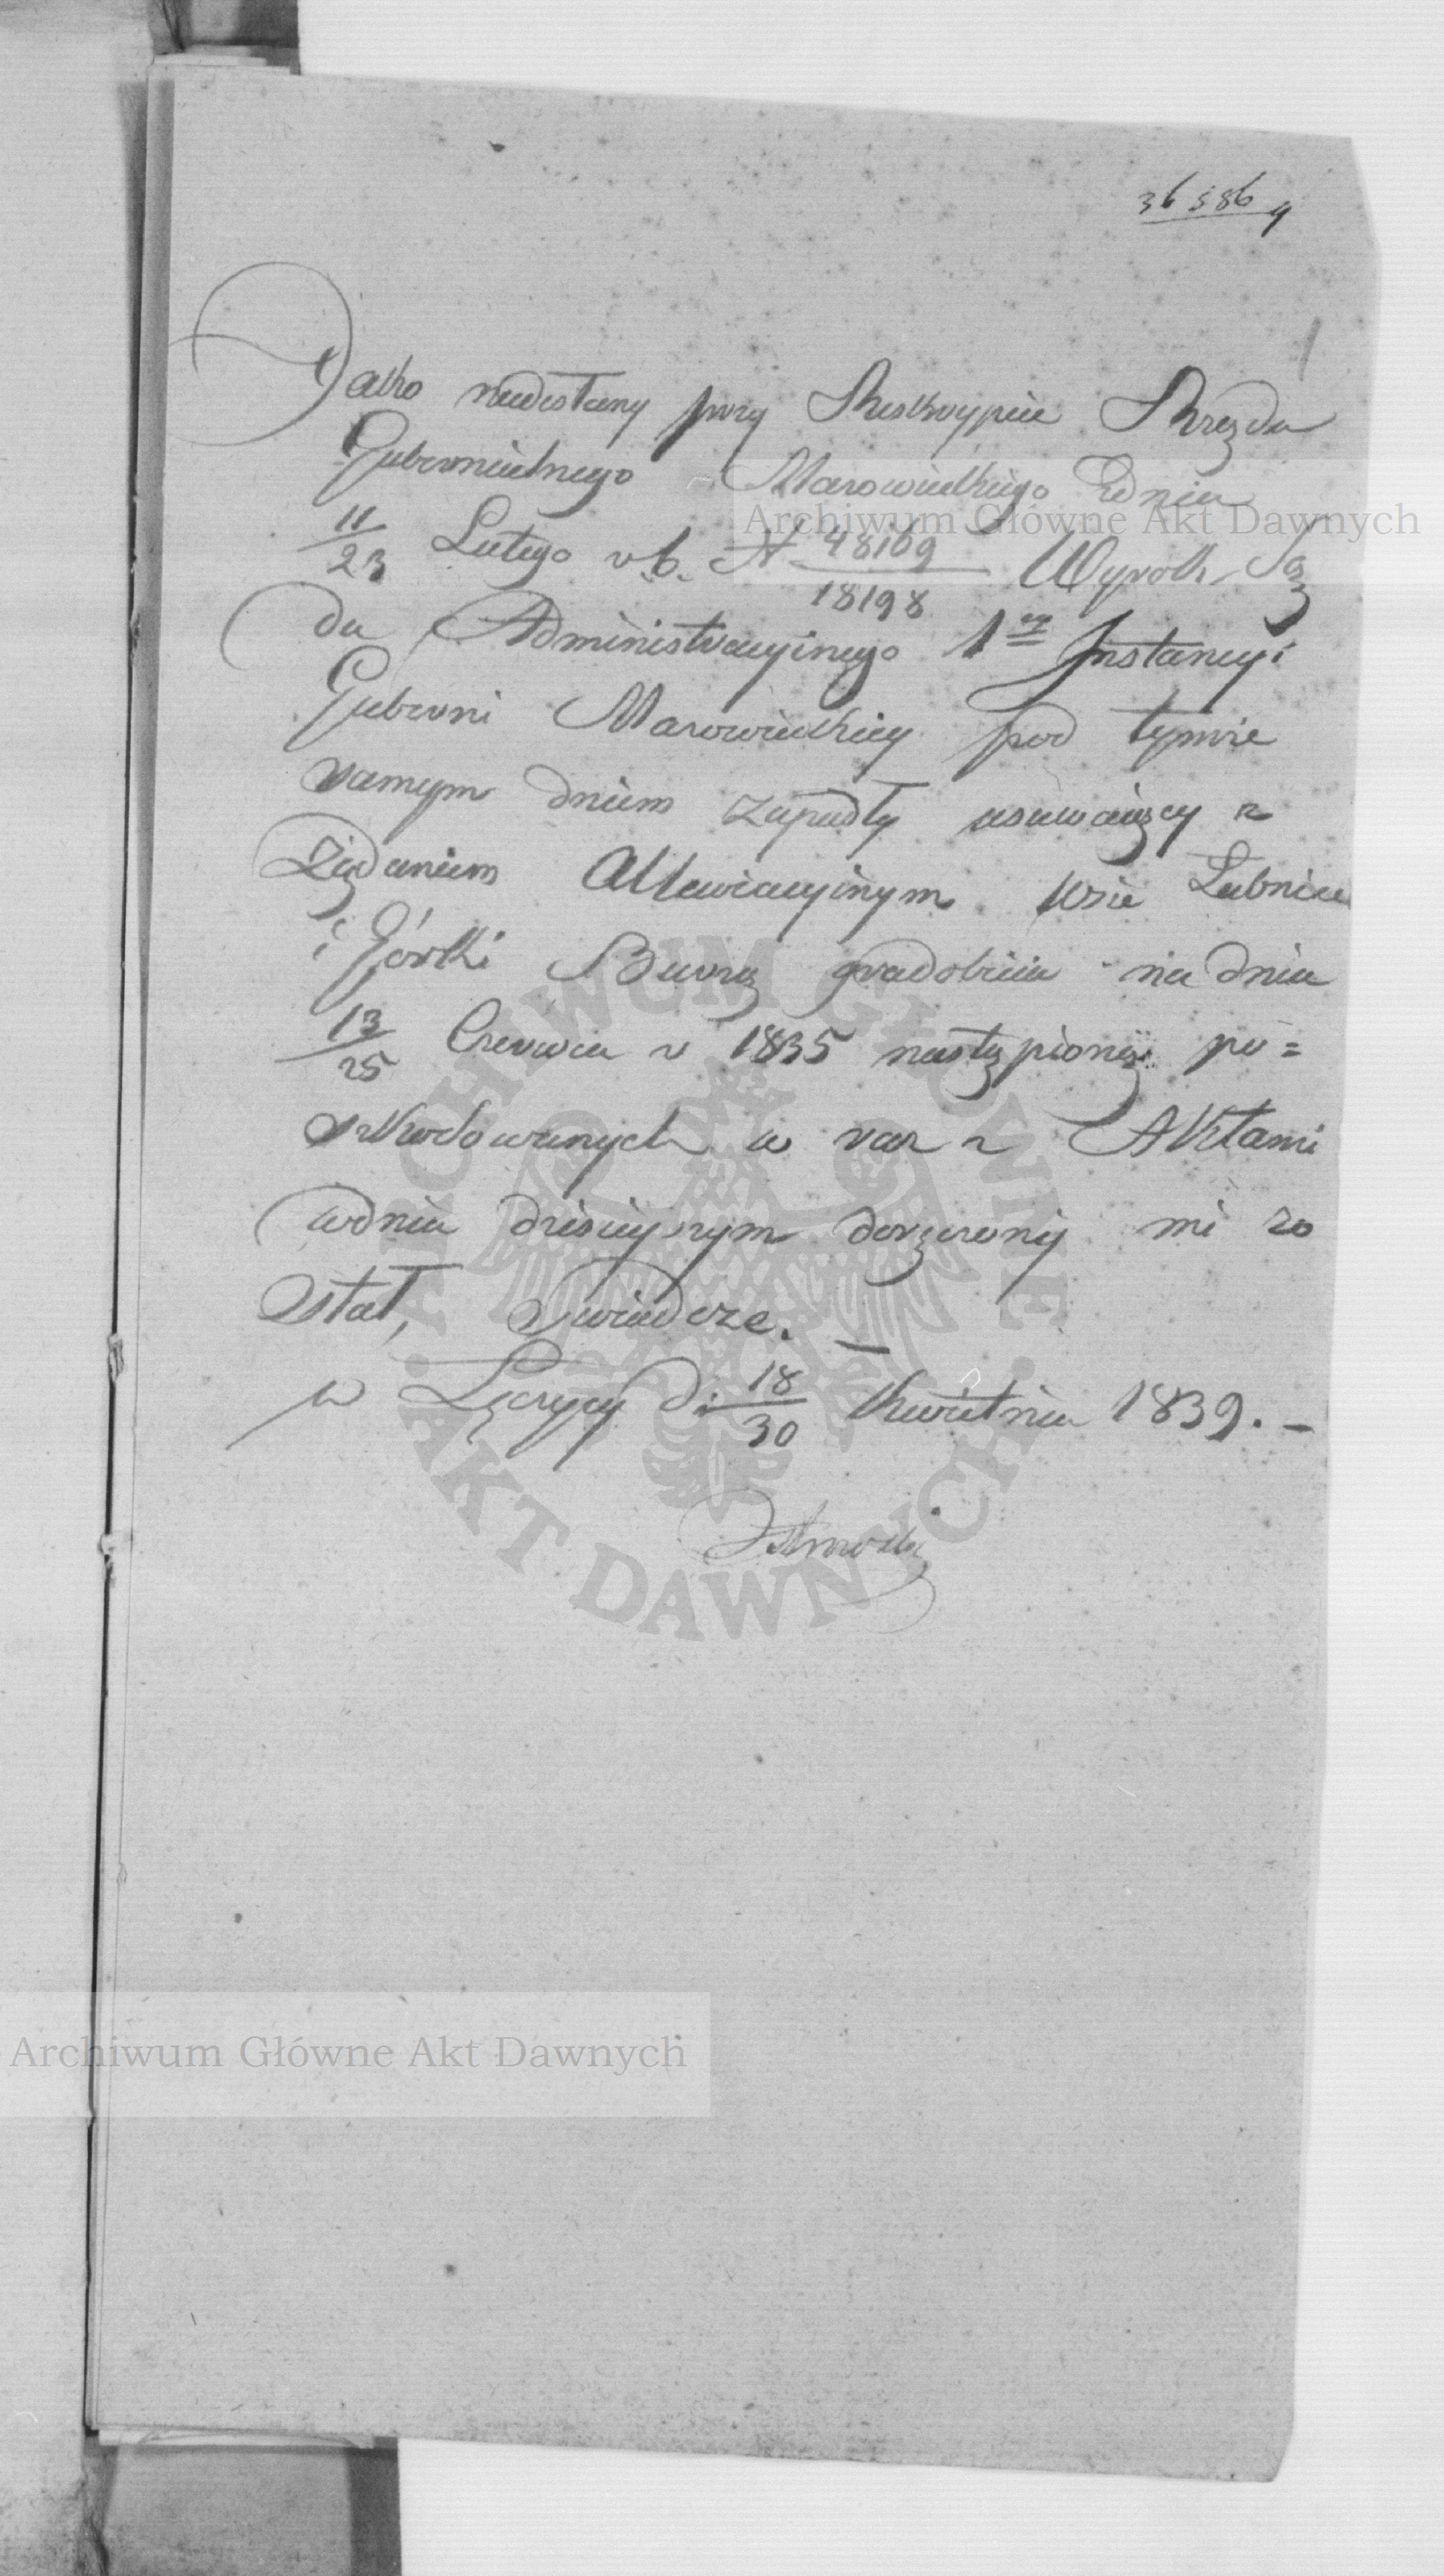 36586
Jako nadesłany przy Reskrypcie Rządu
Gubernialnego Mazowieckiego zdnia
11/23 Lutego r. b. N 48169/18198 Wyrok Są
du Administracyinego 1ey Instancyi
Gubernii Mazowieckiey pod tymże
samym dniem zapadły usuwaiący z
Żądaniem Allewiacyinym wsie
i Górki Burzą gradobicia na dniu
13/25 Czerwca r 1835 nastąpioną po=
szkodowanych w raz z Aktami
wdniu dzisieyszym doręczony mi zo
stał, Swiadczę. —
w Łęczycy d. 18/30 Kwietnia 1839. —
Archiwum Główne Akt Dawnych
ARCHIWUM GŁÓWNE · AKT DAWNYCH ·
Archiwum Główne Akt Dawnych